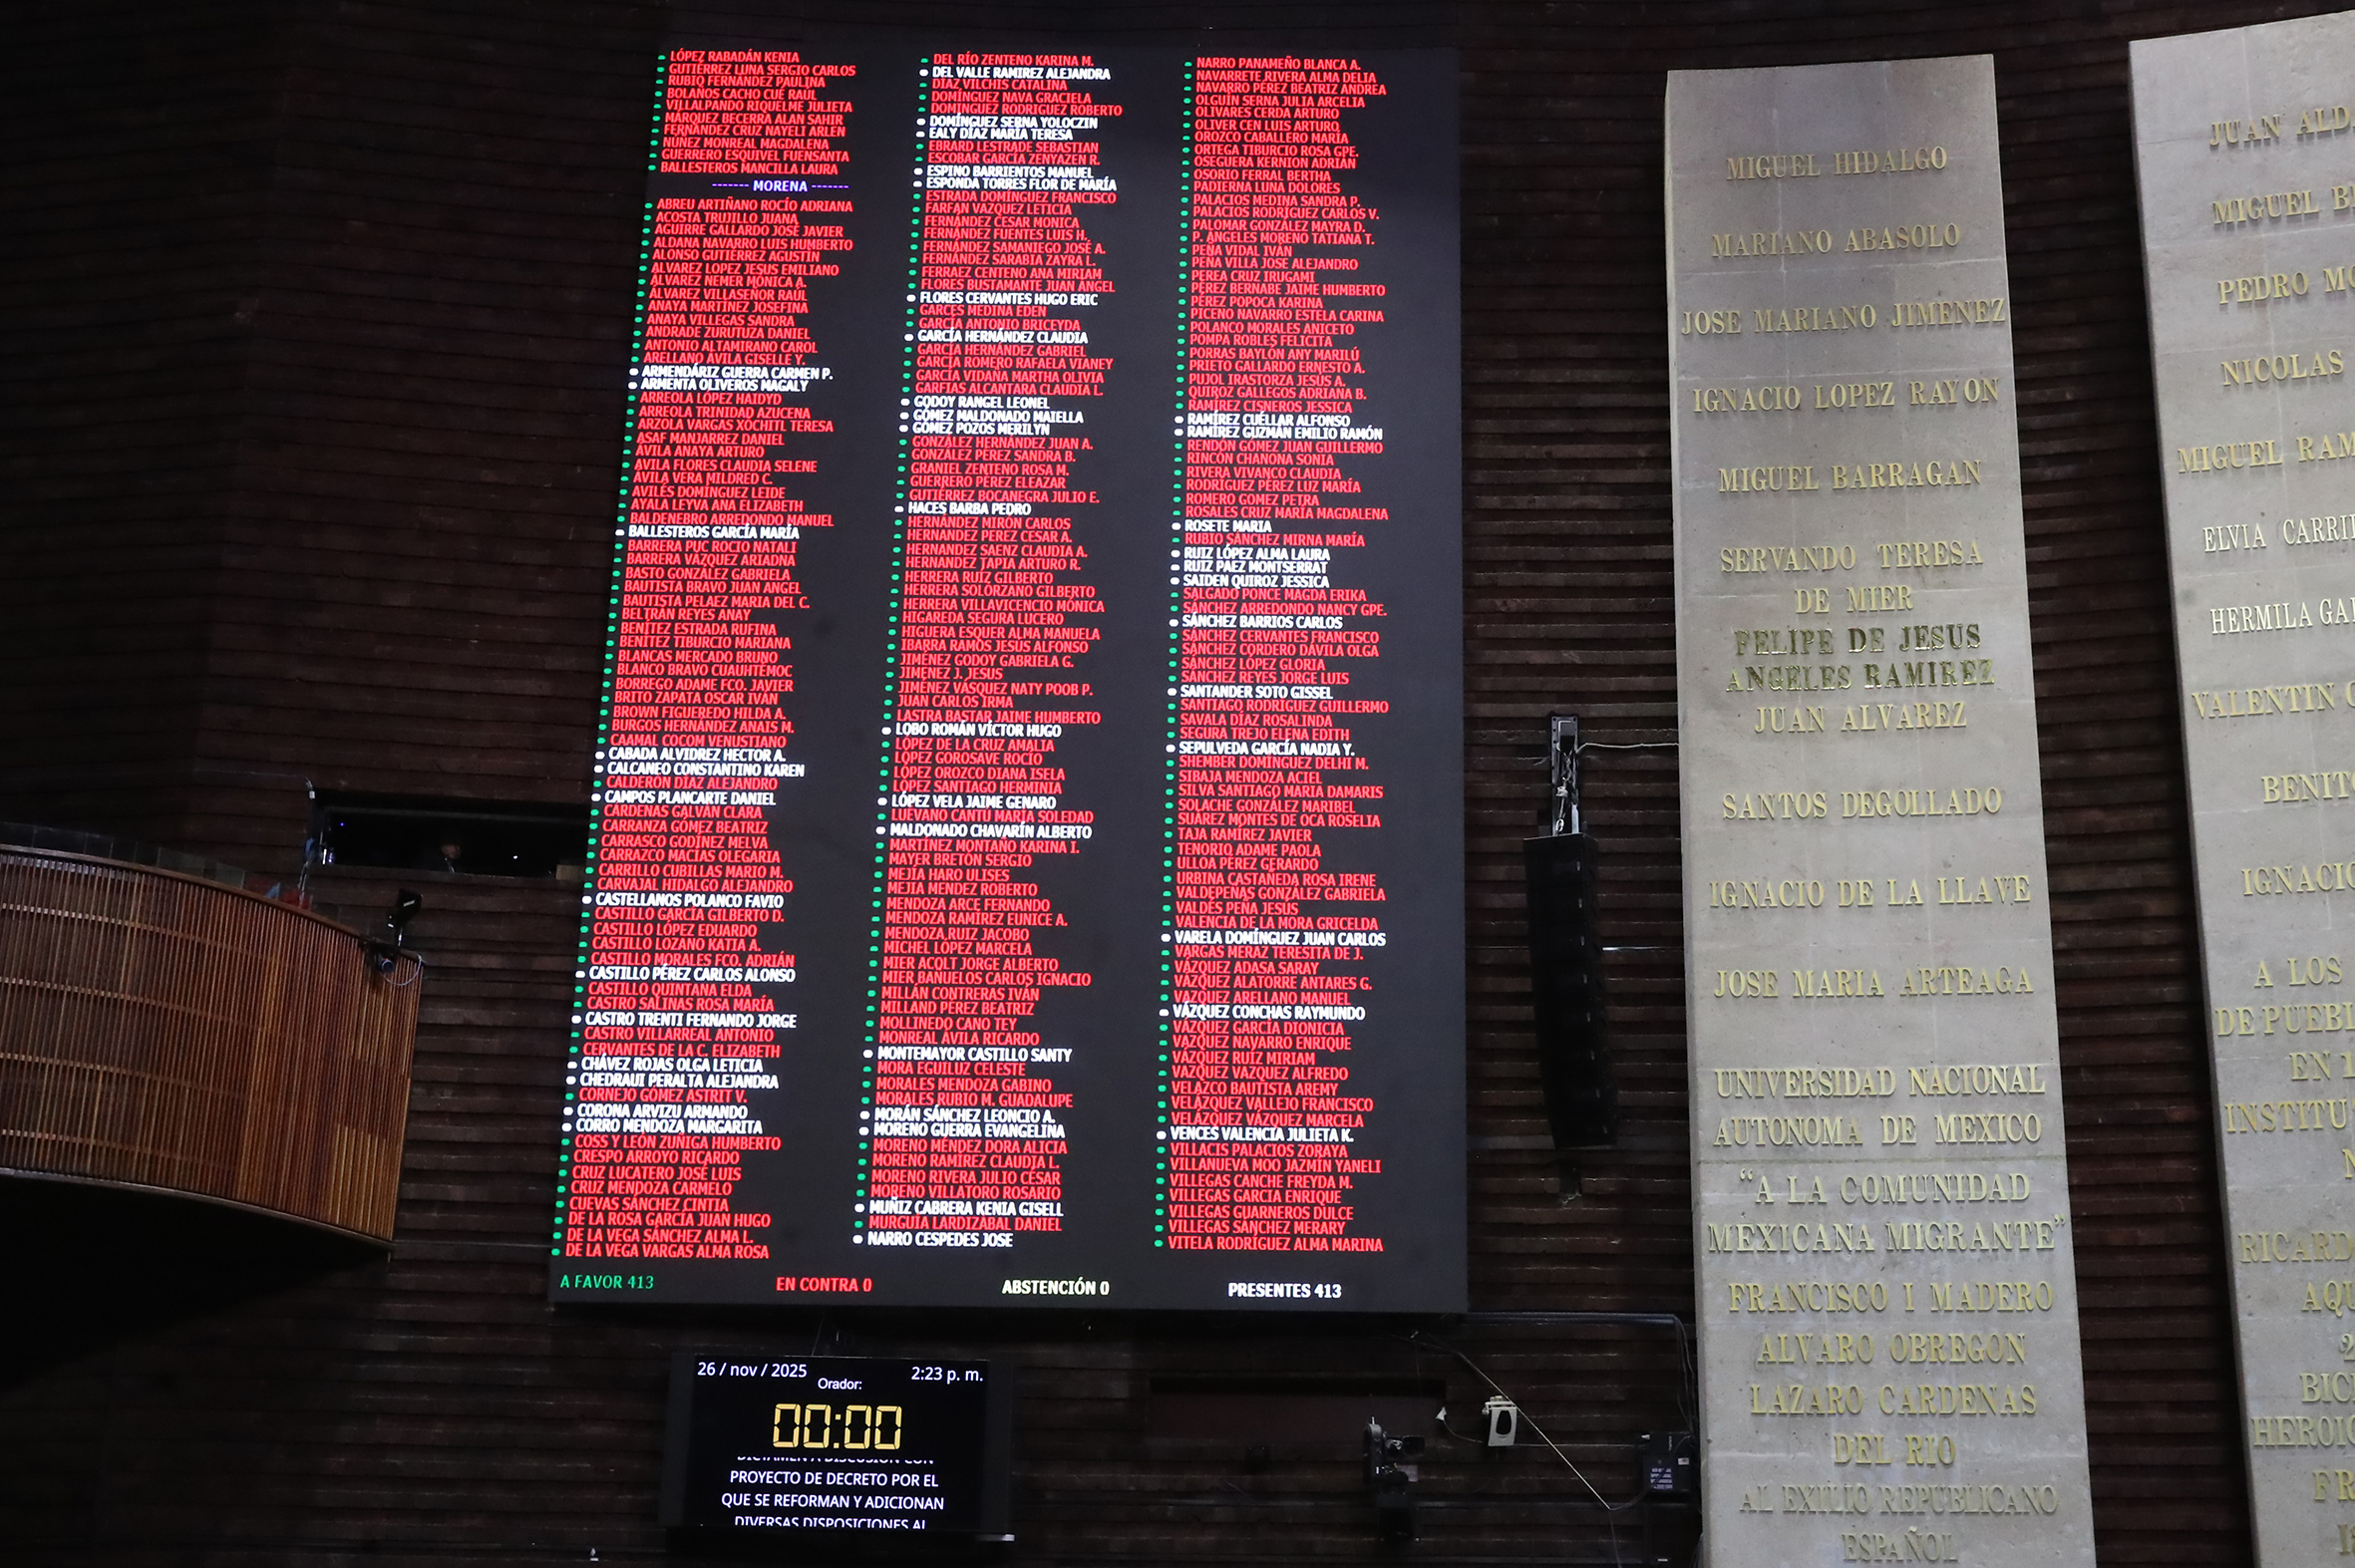 LÓPEZ RABADÁN KENIA
GUTIÉRREZ LUNA SERGIO CARLOS
RUBIO FERNÁNDEZ PAULINA
BOLAÑOS CACHO CUÉ RAÚL
VILLALPANDO RIQUELME JULIETA
MÁRQUEZ BECERRA ALAN SAHIR
FERNÁNDEZ CRUZ NAYELI ARLEN
NÚÑEZ MONREAL MAGDALENA
GUERRERO ESQUIVEL FUENSANTA
BALLESTEROS MANCILLA LAURA
------- MORENA -------
ABREU ARTIÑANO ROCÍO ADRIANA
ACOSTA TRUJILLO JUANA
AGUIRRE GALLARDO JOSÉ JAVIER
ALDANA NAVARRO LUIS HUMBERTO
ALONSO GUTIÉRREZ AGUSTÍN
ÁLVAREZ LÓPEZ JESÚS EMILIANO
ÁLVAREZ NEMER MÓNICA A.
ÁLVAREZ VILLASEÑOR RAÚL
ANAYA MARTÍNEZ JOSEFINA
ANAYA VILLEGAS SANDRA
ANDRADE ZURUTUZA DANIEL
ANTONIO ALTAMIRANO CAROL
ARELLANO ÁVILA GISELLE Y.
ARMENDÁRIZ GUERRA CARMEN P.
ARMENTA OLIVEROS MAGALY
ARREOLA LÓPEZ HAIDYD
ARREOLA TRINIDAD AZUCENA
ARZOLA VARGAS XÓCHITL TERESA
ASAF MANJARREZ DANIEL
ÁVILA ANAYA ARTURO
ÁVILA FLORES CLAUDIA SELENE
ÁVILA VERA MILDRED C.
AVILÉS DOMÍNGUEZ LEIDE
AYALA LEYVA ANA ELIZABETH
BALDENEBRO ARREDONDO MANUEL
BALLESTEROS GARCÍA MARÍA
BARRERA PUC ROCÍO NATALI
BARRERA VÁZQUEZ ARIADNA
BASTO GONZÁLEZ GABRIELA
BAUTISTA BRAVO JUAN ÁNGEL
BAUTISTA PELÁEZ MARÍA DEL C.
BELTRÁN REYES ANAY
BENÍTEZ ESTRADA RUFINA
BENÍTEZ TIBURCIO MARIANA
BLANCAS MERCADO BRUNO
BLANCO BRAVO CUAUHTÉMOC
BORREGO ADAME FCO. JAVIER
BRITO ZAPATA ÓSCAR IVÁN
BROWN FIGUEREDO HILDA A.
BURGOS HERNÁNDEZ ANAIS M.
CAAMAL COCOM VENUSTIANO
CABADA ALVIDREZ HÉCTOR A.
CALCÁNEO CONSTANTINO KAREN
CALDERÓN DÍAZ ALEJANDRO
CAMPOS PLANCARTE DANIEL
CÁRDENAS GALVÁN CLARA
CARRANZA GÓMEZ BEATRIZ
CARRASCO GODÍNEZ MELVA
CARRAZCO MACÍAS OLEGARIA
CARRILLO CUBILLAS MARIO M.
CARVAJAL HIDALGO ALEJANDRO
CASTELLANOS POLANCO FAVIO
CASTILLO GARCÍA GILBERTO D.
CASTILLO LÓPEZ EDUARDO
CASTILLO LOZANO KATIA A.
CASTILLO MORALES FCO. ADRIÁN
CASTILLO PÉREZ CARLOS ALONSO
CASTILLO QUINTANA ELDA
CASTRO SALINAS ROSA MARÍA
CASTRO TRENTI FERNANDO JORGE
CASTRO VILLARREAL ANTONIO
CERVANTES DE LA C. ELIZABETH
CHÁVEZ ROJAS OLGA LETICIA
CHEDRAUI PERALTA ALEJANDRA
CORNEJO GÓMEZ ASTRIT V.
CORONA ARVIZU ARMANDO
CORRO MENDOZA MARGARITA
COSS Y LEÓN ZÚÑIGA HUMBERTO
CRESPO ARROYO RICARDO
CRUZ LUCATERO JOSÉ LUIS
CRUZ MENDOZA CARMELO
CUEVAS SÁNCHEZ CINTIA
DE LA ROSA GARCÍA JUAN HUGO
DE LA VEGA SÁNCHEZ ALMA L.
DE LA VEGA VARGAS ALMA ROSA
DEL RÍO ZENTENO KARINA M.
DEL VALLE RAMÍREZ ALEJANDRA
DÍAZ VILCHIS CATALINA
DOMÍNGUEZ NAVA GRACIELA
DOMÍNGUEZ RODRÍGUEZ ROBERTO
DOMÍNGUEZ SERNA YOLOCZIN
EALY DÍAZ MARÍA TERESA
EBRARD LESTRADE SEBASTIÁN
ESCOBAR GARCÍA ZENYAZEN R.
ESPINO BARRIENTOS MANUEL
ESPONDA TORRES FLOR DE MARÍA
ESTRADA DOMÍNGUEZ FRANCISCO
FARFÁN VÁZQUEZ LETICIA
FERNÁNDEZ CÉSAR MÓNICA
FERNÁNDEZ FUENTES LUIS H.
FERNÁNDEZ SAMANIEGO JOSÉ A.
FERNÁNDEZ SARABIA ZAYRA L.
FERRÁEZ CENTENO ANA MIRIAM
FLORES BUSTAMANTE JUAN ÁNGEL
FLORES CERVANTES HUGO ERIC
GARCÉS MEDINA EDEN
GARCÍA ANTONIO BRICEYDA
GARCÍA HERNÁNDEZ CLAUDIA
GARCÍA HERNÁNDEZ GABRIEL
GARCÍA ROMERO RAFAELA VIANEY
GARCÍA VIDAÑA MARTHA OLIVIA
GARFIAS ALCÁNTARA CLAUDIA L.
GODOY RANGEL LEONEL
GÓMEZ MALDONADO MAIELLA
GÓMEZ POZOS MERILYN
GONZÁLEZ HERNÁNDEZ JUAN A.
GONZÁLEZ PÉREZ SANDRA B.
GRANIEL ZENTENO ROSA M.
GUERRERO PÉREZ ELEAZAR
GUTIÉRREZ BOCANEGRA JULIO E.
HACES BARBA PEDRO
HERNÁNDEZ MIRÓN CARLOS
HERNÁNDEZ PÉREZ CÉSAR A.
HERNÁNDEZ SÁENZ CLAUDIA A.
HERNÁNDEZ TAPIA ARTURO R.
HERRERA RUIZ GILBERTO
HERRERA SOLÓRZANO GILBERTO
HERRERA VILLAVICENCIO MÓNICA
HIGAREDA SEGURA LUCERO
HIGUERA ESQUER ALMA MANUELA
IBARRA RAMOS JESÚS ALFONSO
JIMÉNEZ GODOY GABRIELA G.
JIMÉNEZ J. JESÚS
JIMÉNEZ VÁSQUEZ NATY POOB P.
JUAN CARLOS IRMA
LASTRA BASTAR JAIME HUMBERTO
LOBO ROMÁN VÍCTOR HUGO
LÓPEZ DE LA CRUZ AMALIA
LÓPEZ GOROSAVE ROCÍO
LÓPEZ OROZCO DIANA ISELA
LÓPEZ SANTIAGO HERMINIA
LÓPEZ VELA JAIME GENARO
LUÉVANO CANTÚ MARÍA SOLEDAD
MALDONADO CHAVARÍN ALBERTO
MARTÍNEZ MONTAÑO KARINA I.
MAYER BRETÓN SERGIO
MEJÍA HARO ULISES
MEJÍA MÉNDEZ ROBERTO
MENDOZA ARCE FERNANDO
MENDOZA RAMÍREZ EUNICE A.
MENDOZA RUIZ JACOBO
MICHEL LÓPEZ MARCELA
MIER ACOLT JORGE ALBERTO
MIER BAÑUELOS CARLOS IGNACIO
MILLÁN CONTRERAS IVÁN
MILLAND PÉREZ BEATRIZ
MOLLINEDO CANO TEY
MONREAL ÁVILA RICARDO
MONTEMAYOR CASTILLO SANTY
MORA EGUILUZ CELESTE
MORALES MENDOZA GABINO
MORALES RUBIO M. GUADALUPE
MORÁN SÁNCHEZ LEONCIO A.
MORENO GUERRA EVANGELINA
MORENO MÉNDEZ DORA ALICIA
MORENO RAMÍREZ CLAUDIA L.
MORENO RIVERA JULIO CÉSAR
MORENO VILLATORO ROSARIO
MUÑIZ CABRERA KENIA GISELL
MURGUÍA LARDIZÁBAL DANIEL
NARRO CÉSPEDES JOSÉ
NARRO PANAMEÑO BLANCA A.
NAVARRETE RIVERA ALMA DELIA
NAVARRO PÉREZ BEATRIZ ANDREA
OLGUÍN SERNA JULIA ARCELIA
OLIVARES CERDA ARTURO
OLIVER CEN LUIS ARTURO
OROZCO CABALLERO MARÍA
ORTEGA TIBURCIO ROSA GPE.
OSEGUERA KERNION ADRIÁN
OSORIO FERRAL BERTHA
PADIERNA LUNA DOLORES
PALACIOS MEDINA SANDRA P.
PALACIOS RODRÍGUEZ CARLOS V.
PALOMAR GONZÁLEZ MAYRA D.
P. ÁNGELES MORENO TATIANA T.
PEÑA VIDAL IVÁN
PEÑA VILLA JOSÉ ALEJANDRO
PEREA CRUZ IRUGAMI
PÉREZ BERNABE JAIME HUMBERTO
PÉREZ POPOCA KARINA
PICENO NAVARRO ESTELA CARINA
POLANCO MORALES ANICETO
POMPA ROBLES FELICITA
PORRAS BAYLÓN ANY MARILÚ
PRIETO GALLARDO ERNESTO A.
PUJOL IRASTORZA JESÚS A.
QUIROZ GALLEGOS ADRIANA B.
RAMÍREZ CISNEROS JESSICA
RAMÍREZ CUÉLLAR ALFONSO
RAMÍREZ GUZMÁN EMILIO RAMÓN
RENDÓN GÓMEZ JUAN GUILLERMO
RINCÓN CHANONA SONIA
RIVERA VIVANCO CLAUDIA
RODRÍGUEZ PÉREZ LUZ MARÍA
ROMERO GÓMEZ PETRA
ROSALES CRUZ MARÍA MAGDALENA
ROSETE MARÍA
RUBIO SÁNCHEZ MIRNA MARÍA
RUIZ LÓPEZ ALMA LAURA
RUIZ PÁEZ MONTSERRAT
SAIDEN QUIROZ JESSICA
SALGADO PONCE MAGDA ERIKA
SÁNCHEZ ARREDONDO NANCY GPE.
SÁNCHEZ BARRIOS CARLOS
SÁNCHEZ CERVANTES FRANCISCO
SÁNCHEZ CORDERO DÁVILA OLGA
SÁNCHEZ LÓPEZ GLORIA
SÁNCHEZ REYES JORGE LUIS
SANTANDER SOTO GISSEL
SANTIAGO RODRÍGUEZ GUILLERMO
SAVALA DÍAZ ROSALINDA
SEGURA TREJO ELENA EDITH
SEPÚLVEDA GARCÍA NADIA Y.
SHEMBER DOMÍNGUEZ DELHI M.
SIBAJA MENDOZA ACIEL
SILVA SANTIAGO MARÍA DAMARIS
SOLACHE GONZÁLEZ MARIBEL
SUÁREZ MONTES DE OCA ROSELIA
TAJA RAMÍREZ JAVIER
TENORIO ADAME PAOLA
ULLOA PÉREZ GERARDO
URBINA CASTAÑEDA ROSA IRENE
VALDEPEÑAS GONZÁLEZ GABRIELA
VALDÉS PEÑA JESÚS
VALENCIA DE LA MORA GRICELDA
VARELA DOMÍNGUEZ JUAN CARLOS
VARGAS MERAZ TERESITA DE J.
VÁZQUEZ ADASA SARAY
VÁZQUEZ ALATORRE ANTARES G.
VÁZQUEZ ARELLANO MANUEL
VÁZQUEZ CONCHAS RAYMUNDO
VÁZQUEZ GARCÍA DIONICIA
VÁZQUEZ NAVARRO ENRIQUE
VÁZQUEZ RUIZ MIRIAM
VÁZQUEZ VÁZQUEZ ALFREDO
VELAZCO BAUTISTA AREMY
VELÁZQUEZ VALLEJO FRANCISCO
VELÁZQUEZ VÁZQUEZ MARCELA
VENCES VALENCIA JULIETA K.
VILLACIS PALACIOS ZORAYA
VILLANUEVA MOO JAZMÍN YANELI
VILLEGAS CANCHE FREYDA M.
VILLEGAS GARCÍA ENRIQUE
VILLEGAS GUARNEROS DULCE
VILLEGAS SÁNCHEZ MERARY
VITELA RODRÍGUEZ ALMA MARINA
A FAVOR 413 EN CONTRA 0 ABSTENCIÓN 0 PRESENTES 413
26 / nov / 2025 2:23 p. m.
Orador:
00:00
DICTAMEN A DISCUSIÓN CON
PROYECTO DE DECRETO POR EL
QUE SE REFORMAN Y ADICIONAN
DIVERSAS DISPOSICIONES AL
MIGUEL HIDALGO
MARIANO ABASOLO
JOSE MARIANO JIMENEZ
IGNACIO LOPEZ RAYON
MIGUEL BARRAGAN
SERVANDO TERESA
DE MIER
FELIPE DE JESUS
ANGELES RAMIREZ
JUAN ALVAREZ
SANTOS DEGOLLADO
IGNACIO DE LA LLAVE
JOSE MARIA ARTEAGA
UNIVERSIDAD NACIONAL
AUTONOMA DE MEXICO
“A LA COMUNIDAD
MEXICANA MIGRANTE”
FRANCISCO I MADERO
ALVARO OBREGON
LAZARO CARDENAS
DEL RIO
AL EXILIO REPUBLICANO
ESPAÑOL
JUAN ALD
MIGUEL B
PEDRO MO
NICOLAS
MIGUEL RAM
ELVIA CARRI
HERMILA GA
VALENTIN
BENITO
IGNACIO
A LOS
DE PUEBL
EN 1
INSTITU
RICARD
AQU
BIC
HEROI
FR